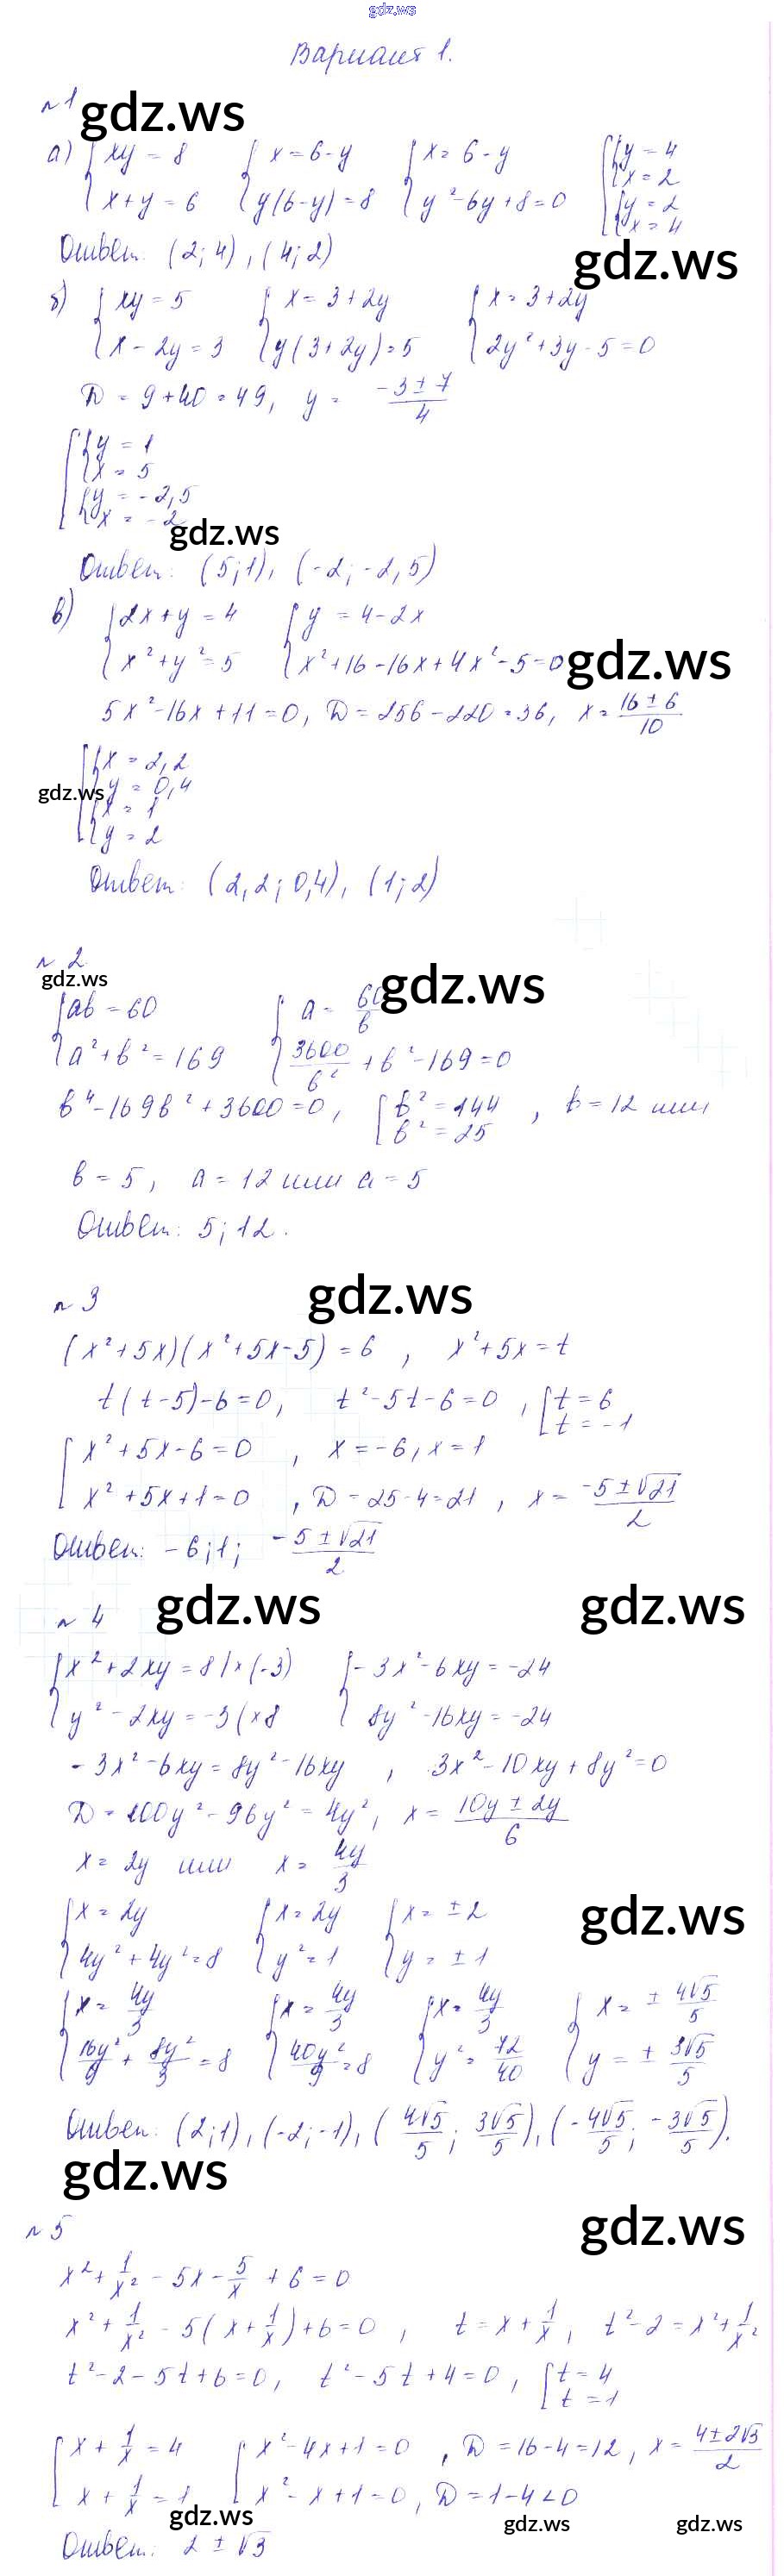 gdz.ws
Вариант 1.
№1 gdz.ws
а) { xy = 8 { x = 6 - y { x = 6 - y [ { y = 4
x = 2
{ x + y = 6 { y(6-y) = 8 { y² - 6y + 8 = 0 { y = 2
x = 4
Ответ: (2; 4), (4; 2)
gdz.ws
б) { xy = 5 { x = 3 + 2y { x = 3 + 2y
{ x - 2y = 3 { y(3 + 2y) = 5 { 2y² + 3y - 5 = 0
D = 9 + 40 = 49, y = (-3 ± 7)/4
[ { y = 1
x = 5
{ y = -2,5
x = -2
gdz.ws
Ответ: (5; 1), (-2; -2,5)
в) { 2x + y = 4 { y = 4 - 2x
{ x² + y² = 5 { x² + 16 - 16x + 4x² - 5 = 0 gdz.ws
5x² - 16x + 11 = 0, D = 256 - 220 = 36, x = (16 ± 6)/10
[ { x = 2,2
gdz.ws y = 0,4
{ x = 1
y = 2
Ответ: (2,2; 0,4), (1; 2)
№2
gdz.ws gdz.ws
{ ab = 60 { a = 60/b
{ a² + b² = 169 { 3600/b² + b² - 169 = 0
b⁴ - 169b² + 3600 = 0, [ b² = 144
b² = 25 , b = 12 или
b = 5, a = 12 или a = 5
Ответ: 5; 12.
№3 gdz.ws
(x² + 5x)(x² + 5x - 5) = 6, x² + 5x = t
t(t - 5) - 6 = 0, t² - 5t - 6 = 0, [ t = 6
t = -1
[ x² + 5x - 6 = 0, x = -6, x = 1
x² + 5x + 1 = 0, D = 25 - 4 = 21, x = (-5 ± √21)/2
Ответ: -6; 1; (-5 ± √21)/2
№4 gdz.ws gdz.ws
{ x² + 2xy = 8 | × (-3) { -3x² - 6xy = -24
{ y² - 2xy = -3 (×8 { 8y² - 16xy = -24
-3x² - 6xy = 8y² - 16xy, 3x² - 10xy + 8y² = 0
D = 100y² - 96y² = 4y², x = (10y ± 2y)/6
x = 2y или x = 4y/3
gdz.ws
{ x = 2y { x = 2y { x = ±2
{ 4y² + 4y² = 8 { y² = 1 { y = ±1
{ x = 4y/3 { x = 4y/3 { x = 4y/3 { x = ± 4√5/5
{ 16y²/9 + 8y²/3 = 8 { 40y²/9 = 8 { y² = 72/40 { y = ± 3√5/5
Ответ: (2; 1), (-2; -1), (4√5/5; 3√5/5), (-4√5/5; -3√5/5).
gdz.ws
№5 gdz.ws
x² + 1/x² - 5x - 5/x + 6 = 0
x² + 1/x² - 5(x + 1/x) + 6 = 0, t = x + 1/x, t² - 2 = x² + 1/x²
t² - 2 - 5t + 6 = 0, t² - 5t + 4 = 0, [ t = 4
t = 1
[ x + 1/x = 4 [ x² - 4x + 1 = 0, D = 16 - 4 = 12, x = (4 ± 2√3)/2
x + 1/x = 1 x² - x + 1 = 0, D = 1 - 4 < 0
gdz.ws gdz.ws gdz.ws
Ответ: 2 ± √3